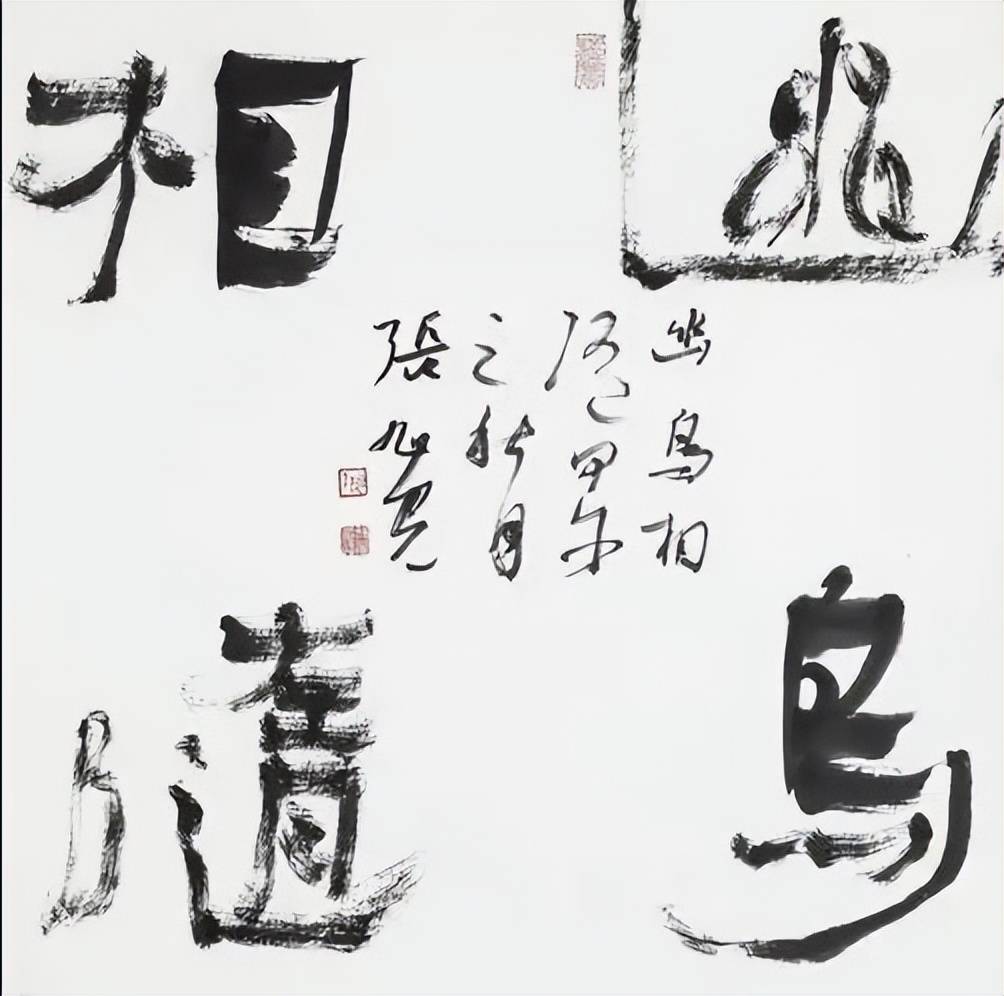 幽鳥
相隨
幽鳥相
隨甲午
之秋月
張旭光